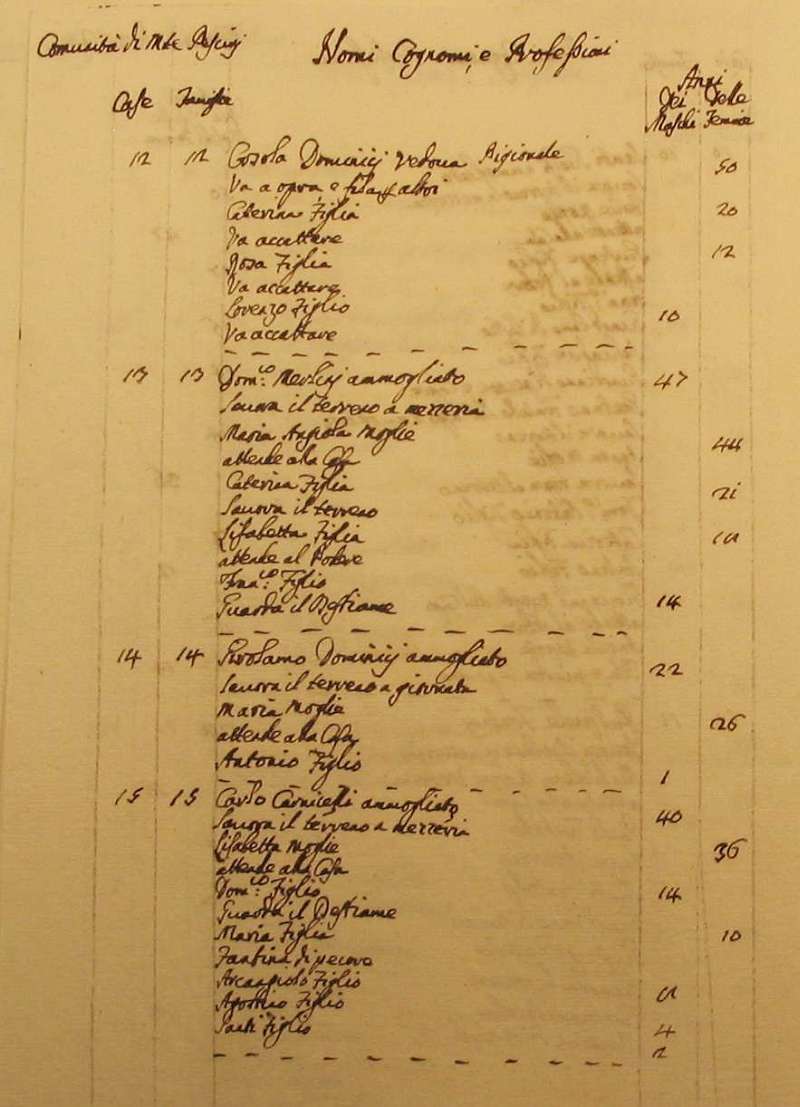 Comunità di Mte
Nomi Cognomi, e Professioni
Anni
Case Famiglie Dei Delle
Maschi Femine
12 12 Dominicj Vedova Pigionale 50
Va a opra e fila
Caterina Figlia 20
Va accattare
Rosa Figlia 12
Va accattare
Lorenzo Figlio 10
Va accattare
13 13 Dom.co Merlinj ammogliato 47
Lavora il terreno a mezzeria
Maria Angiola Moglie 44
attende alla Casa
Caterina Figlia 21
Lavora il terreno
Lisabetta Figlia
attende al Podere
Fran.co Figlio 14
Guarda il Bestiame
14 14 Girolamo Dominicj ammogliato 22
Lavora il terreno a giornata
Maria Moglie 26
attende alla Casa
Antonio Figlio 1
15 15 Carlo Carnicelli ammogliato 40
Lavora il terreno a mezzeria
Lisabetta Moglie 36
attende alla Casa
Dom.co Figlio 14
Guarda il Bestiame
Maria Figlia 10
di pecore
Arcangiolo Figlio
Agostino Figlio 4
Santi Figlio 2